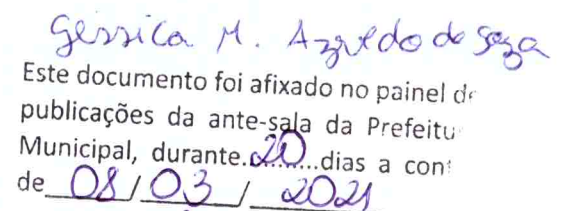 Gessica M. Azevedo de Souza
Este documento foi afixado no painel de
publicações da ante-sala da Prefeitu
Municipal, durante.20......dias a con
de 08/03/2021